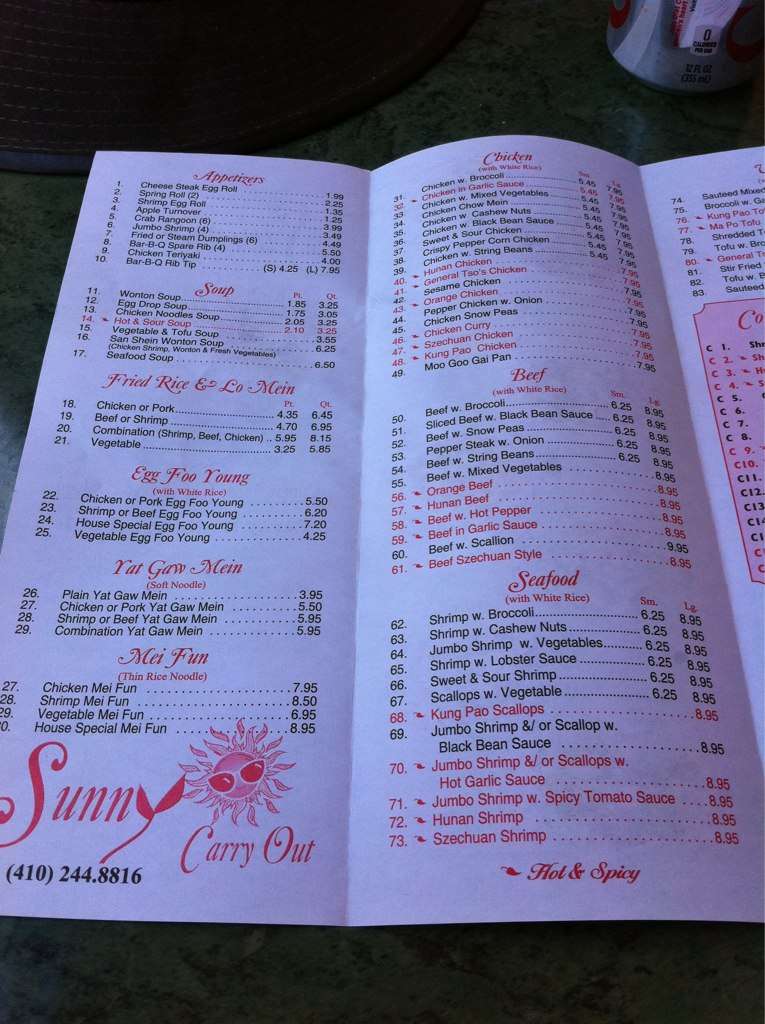 0
CALORIES
PER CAN
12 FL OZ
(355 mL)
Appetizers
1. Cheese Steak Egg Roll 1.99
2. Spring Roll (2) 2.25
3. Shrimp Egg Roll 1.35
4. Apple Turnover 1.25
5. Crab Rangoon (6) 3.99
6. Jumbo Shrimp (4) 3.49
7. Fried or Steam Dumplings (6) 4.49
8. Bar-B-Q Spare Rib (4) 5.50
9. Chicken Teriyaki 4.00
10. Bar-B-Q Rib Tip (S) 4.25 (L) 7.95
Soup
Pt. Qt.
11. Wonton Soup 1.85 3.25
12. Egg Drop Soup 1.75 3.05
13. Chicken Noodles Soup 2.05 3.25
14. Hot & Sour Soup 2.10 3.25
15. Vegetable & Tofu Soup 3.55
16. San Shein Wonton Soup 6.25
(Chicken Shrimp, Wonton & Fresh Vegetables)
17. Seafood Soup 6.50
Fried Rice & Lo Mein
Pt. Qt.
18. Chicken or Pork 4.35 6.45
19. Beef or Shrimp 4.70 6.95
20. Combination (Shrimp, Beef, Chicken) 5.95 8.15
21. Vegetable 3.25 5.85
Egg Foo Young
(with White Rice)
22. Chicken or Pork Egg Foo Young 5.50
23. Shrimp or Beef Egg Foo Young 6.20
24. House Special Egg Foo Young 7.20
25. Vegetable Egg Foo Young 4.25
Yat Gaw Mein
(Soft Noodle)
26. Plain Yat Gaw Mein 3.95
27. Chicken or Pork Yat Gaw Mein 5.50
28. Shrimp or Beef Yat Gaw Mein 5.95
29. Combination Yat Gaw Mein 5.95
Mei Fun
(Thin Rice Noodle)
27. Chicken Mei Fun 7.95
28. Shrimp Mei Fun 8.50
29. Vegetable Mei Fun 6.95
0. House Special Mei Fun 8.95
Sunny
Carry Out
(410) 244.8816
Chicken
(with White Rice)
Sm. Lg.
31. Chicken w. Broccoli 5.45 7.95
32. Chicken in Garlic Sauce 5.45 7.95
33. Chicken w. Mixed Vegetables 5.45 7.95
34. Chicken Chow Mein 5.45 7.95
35. Chicken w. Cashew Nuts 5.45 7.95
36. Chicken w. Black Bean Sauce 5.45 7.95
37. Sweet & Sour Chicken 5.45 7.95
38. Crispy Pepper Corn Chicken 5.45 7.95
39. Chicken w. String Beans 5.45 7.95
40. Hunan Chicken 7.95
41. General Tso's Chicken 7.95
42. Sesame Chicken 7.95
43. Orange Chicken 7.95
44. Pepper Chicken w. Onion 7.95
45. Chicken Snow Peas 7.95
46. Chicken Curry 7.95
47. Szechuan Chicken 7.95
48. Kung Pao Chicken 7.95
49. Moo Goo Gai Pan 7.95
Beef
(with White Rice)
Sm. Lg.
50. Beef w. Broccoli 6.25 8.95
51. Sliced Beef w. Black Bean Sauce 6.25 8.95
52. Beef w. Snow Peas 6.25 8.95
53. Pepper Steak w. Onion 6.25 8.95
54. Beef w. String Beans 6.25 8.95
55. Beef w. Mixed Vegetables 8.95
56. Orange Beef 8.95
57. Hunan Beef 8.95
58. Beef w. Hot Pepper 8.95
59. Beef in Garlic Sauce 8.95
60. Beef w. Scallion 9.95
61. Beef Szechuan Style 8.95
Seafood
(with White Rice)
Sm. Lg.
62. Shrimp w. Broccoli 6.25 8.95
63. Shrimp w. Cashew Nuts 6.25 8.95
64. Jumbo Shrimp w. Vegetables 6.25 8.95
65. Shrimp w. Lobster Sauce 6.25 8.95
66. Sweet & Sour Shrimp 6.25 8.95
67. Scallops w. Vegetable 6.25 8.95
68. Kung Pao Scallops 8.95
69. Jumbo Shrimp &/ or Scallop w.
Black Bean Sauce 8.95
70. Jumbo Shrimp &/ or Scallops w.
Hot Garlic Sauce 8.95
71. Jumbo Shrimp w. Spicy Tomato Sauce 8.95
72. Hunan Shrimp 8.95
73. Szechuan Shrimp 8.95
Hot & Spicy
74. Sauteed Mixed
75. Broccoli w. Ga
76. Kung Pao To
77. Ma Po Tofu
78. Shredded T
79. Tofu w. Bro
80. General T
81. Stir Fried
82. Tofu w. B
83. Sauteed
Co
C 1. Shr
C 2. Sh
C 3. Hu
C 4. S
C 5.
C 6.
C 7.
C 8.
C 9.
C10.
C11.
C12.
C13
C14
C1